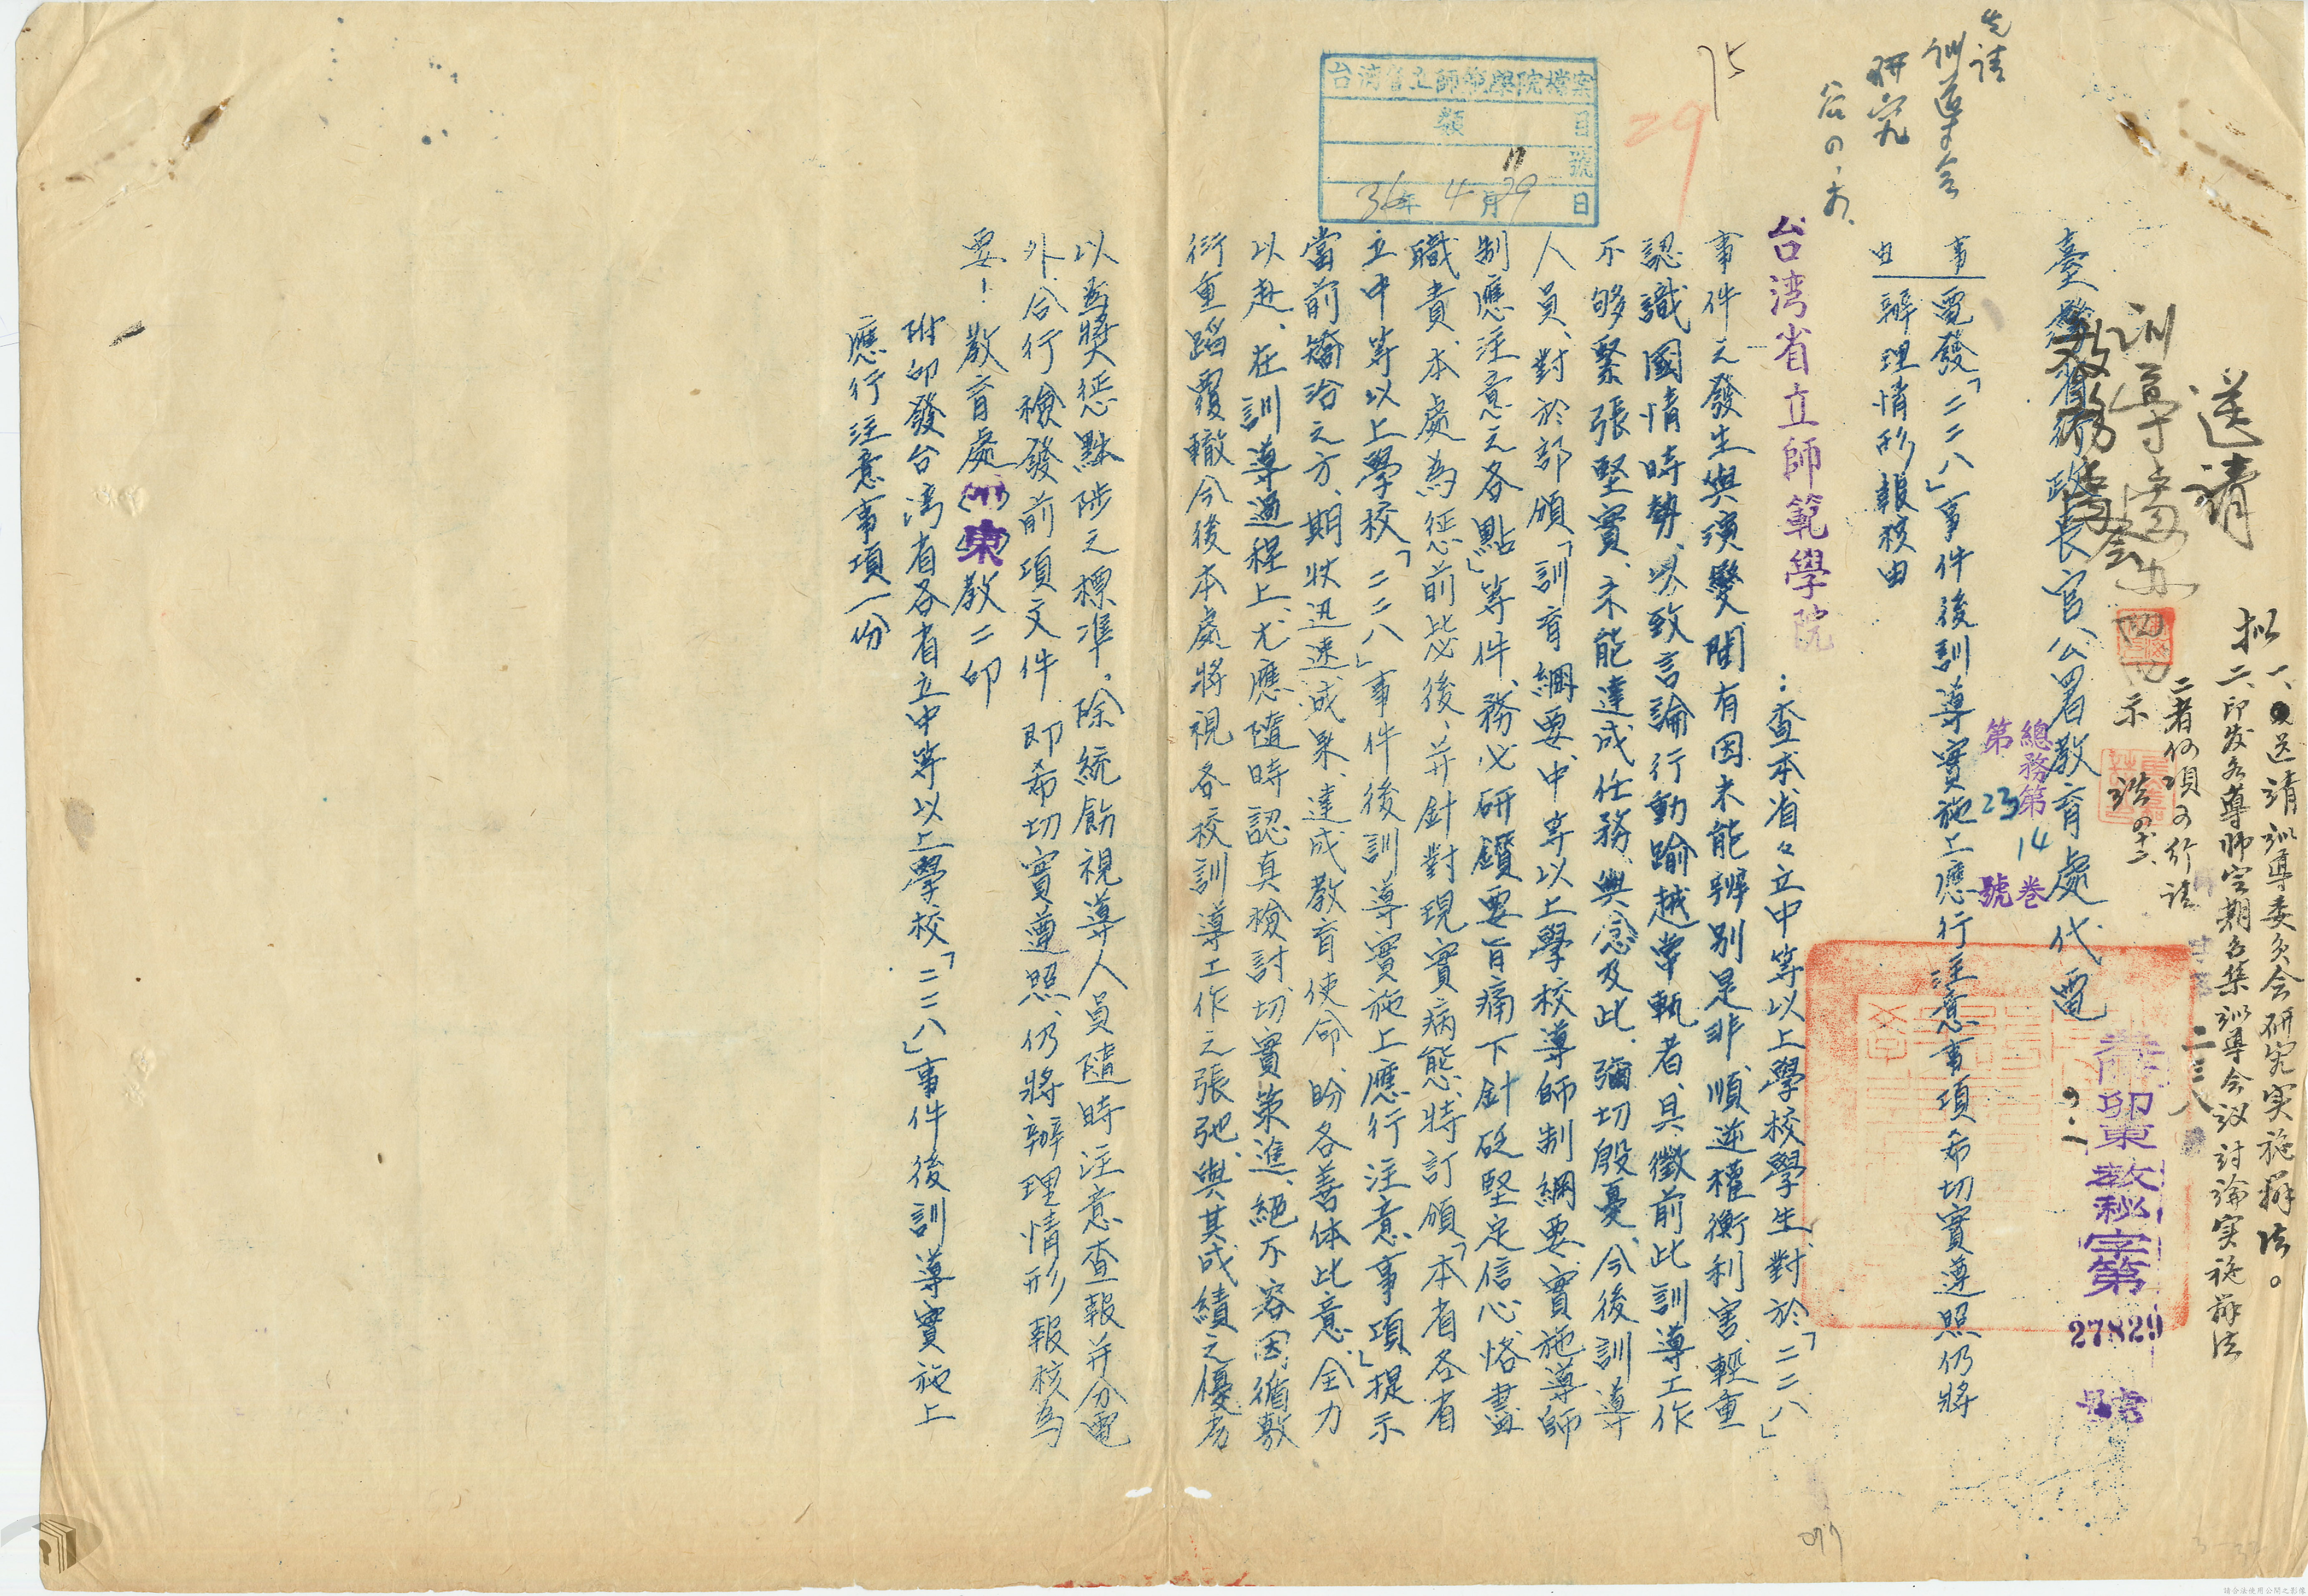 一、送請訓導委員会研究実施辦法。
拟
二、印发各導師定期召集訓導会议討論実施辦法
二者何項可行請
示
送請
訓導處
教務處会
臺灣省行政長官公署教育處代電
卯東教秘字第
27829
號
總務第14卷
第23號
事由
電發「二二八」事件後訓導實施上應行注意事項希切實遵照仍將
辦理情形報核由
先請
訓導会
研究
台湾省立師範學院
：查本省々立中等以上學校學生、對於「二二八」
事件之發生與演變、間有因未能辨別是非、順逆權衡利害、輕重
認識國情時勢、以致言論行動踰越常軌者、具徵前此訓導工作
不够緊張堅實、未能達成任務、興念及此、彌切殷憂、今後訓導
人員、對於部頒「訓育綱要、中等以上學校導師制綱要、實施導師
制應注意之各點」等件、務必研鑽要旨痛下針砭堅定信心、恪盡
職責、本處為懲前毖後、并針對現實病態、特訂頒「本省各省
立中等以上學校「二二八」事件後訓導實施上應行注意事項」、提示
當前矯治之方、期收迅速成果、達成教育使命、盼各善体此意、全力
以赴、在訓導過程上、尤應隨時認真檢討、切實策進、絕不容因循敷
衍重蹈覆轍今後本處將視各校訓導工作之張弛、與其成績之優劣
以為獎懲黜陟之標準。除統飭視導人員隨時注意查報并分電
外、合行檢發前項文件、即希切實遵照、仍將辦理情形報核為
要！教育處(卅)(卯)東教二印
附印發台灣省各省立中等以上學校「二二八」事件後訓導實施上
應行注意事項一份
75
29
台湾省立師範學院檔案
類 目
11 號
36年4月29日